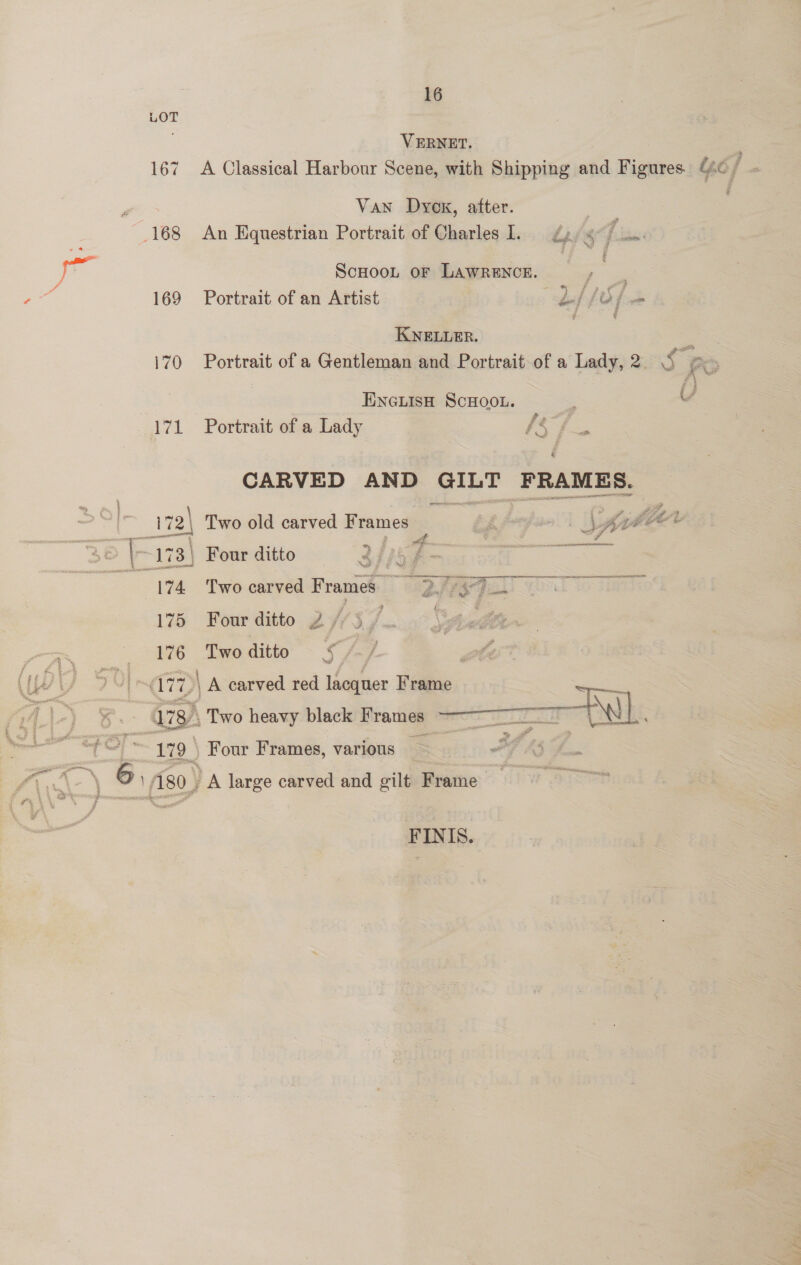 16
LOT
VERNET.
167 A Classical Harbour Scene, with Shipping and Figures
VAN DYCK, after.
168 An Equestrian Portrait of Charles I.
SCHOOL OF LAWRENCE.
169 Portrait of an Artist
KNELLER.
170 Portrait of a Gentleman and Portrait of a Lady, 2.
ENGLISH SCHOOL.
171 Portrait of a Lady
CARVED AND GILT FRAMES.
172 Two old carved Frames
173 Four ditto
174 Two carved Frames
175 Four ditto
176 Two ditto
177 A carved red lacquer Frame
178 Two heavy black Frames
179 Four Frames, various
180 A large carved and gilt Frame
FINIS.